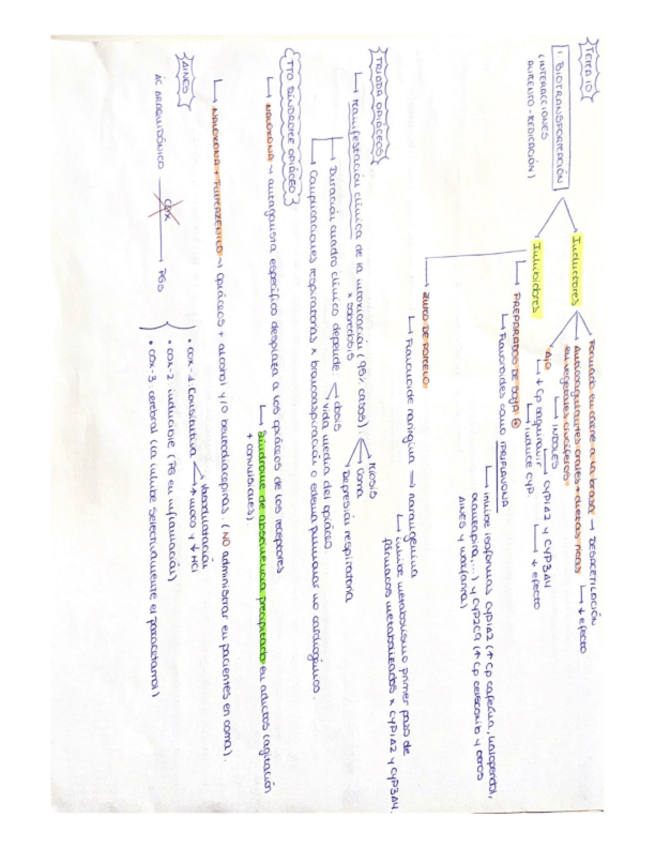 TEMA 10
1. BIOTRANSFORMACIÓN
(INTERACCIONES
ALIMENTO-MEDICACIÓN)
Inductores
Fenitoína
carne a la brasa → DESACETILACIÓN
Anticoagulantes orales + dietas ricas
en vegetales crucíferos
↓ efecto
INDOLES
CYP1A2 y CYP3A4
↓ efecto
AJO
↓ Cp saquinavir
INDUCE CYP.
Inhibidores
PREPARADOS DE SOJA
Flavonoides como IPRIFLAVONA
inhibe isoformas CYP1A2 (↑ Cp cafeína, haloperidol,
olanzapina,...) y CYP2C9 (↑ Cp celecoxib y otros
AINES y warfarina)
ZUMO DE POMELO
Flavonoide naringina → naringenina
inhibe metabolismo primer paso de
fármacos metabolizados x CYP1A2 y CYP3A4.
TRIADA OPIÁCEOS
Manifestación clínica de la intoxicación (95% casos).
x sobredosis
MIOSIS
Coma
Depresión respiratoria
Duración cuadro clínico depende
dosis
vida media del opiáceo.
Complicaciones respiratorias x broncoaspiración o edema pulmonar no cardiogénico.
TTO SÍNDROME OPIÁCEO
NALOXONA ~ antagonista específico desplaza a los opiáceos de los receptores
Síndrome de abstinencia precipitado en adictos (agitación
+ convulsiones).
NALOXONA + FLUMAZENILO ~ opiáceos + alcohol y/o benzodiacepinas. (NO administrar en pacientes en coma).
AINES
ÁC ARAQUIDÓNICO
COX
PGs
• COX-1 Constitutiva
Vasodilatación
↑ moco y ↓ HCl
• COX-2 inducible (PG en inflamación)
• COX-3 cerebral (la inhibe selectivamente el paracetamol)